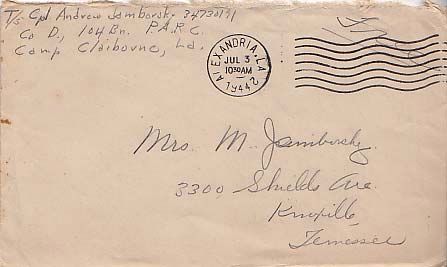 T/5 Cpl. Andrew Jamborsky 34730191
Co D., 104 Bn. P.A.R.C.
Camp Claiborne, La.
ALEXANDRIA, LA.
JUL 3
10 30 AM
1944
2
Free
Mrs. M. Jamborsky
3300 Shields Ave.
Knoxville,
Tennessee